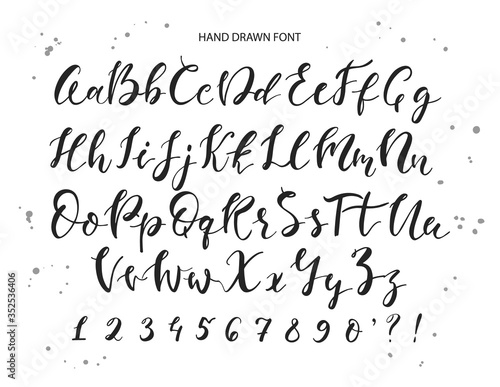 HAND DRAWN FONT
AaBbCcDdEeFfGg
HhIiJjKkLlMmNn
OoPpQqRrSsTtUu
VvWwXxYyZz
1 2 3 4 5 6 7 8 9 0 ' ? !
Adobe Stock | #352536406